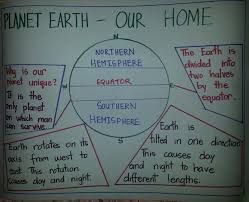 PLANET EARTH - OUR HOME
N
NORTHERN
HEMISPHERE
W
EQUATOR
E
SOUTHERN
HEMISPHERE
S
Why is our
planet unique?
It is the
only planet
on which man
can survive.
The Earth is
divided into
two halves
by the
equator.
Earth rotates on its
axis from west to
east. This rotation
causes day and night.
Earth is
tilted in one direction
This causes day
and night to have
different lengths.